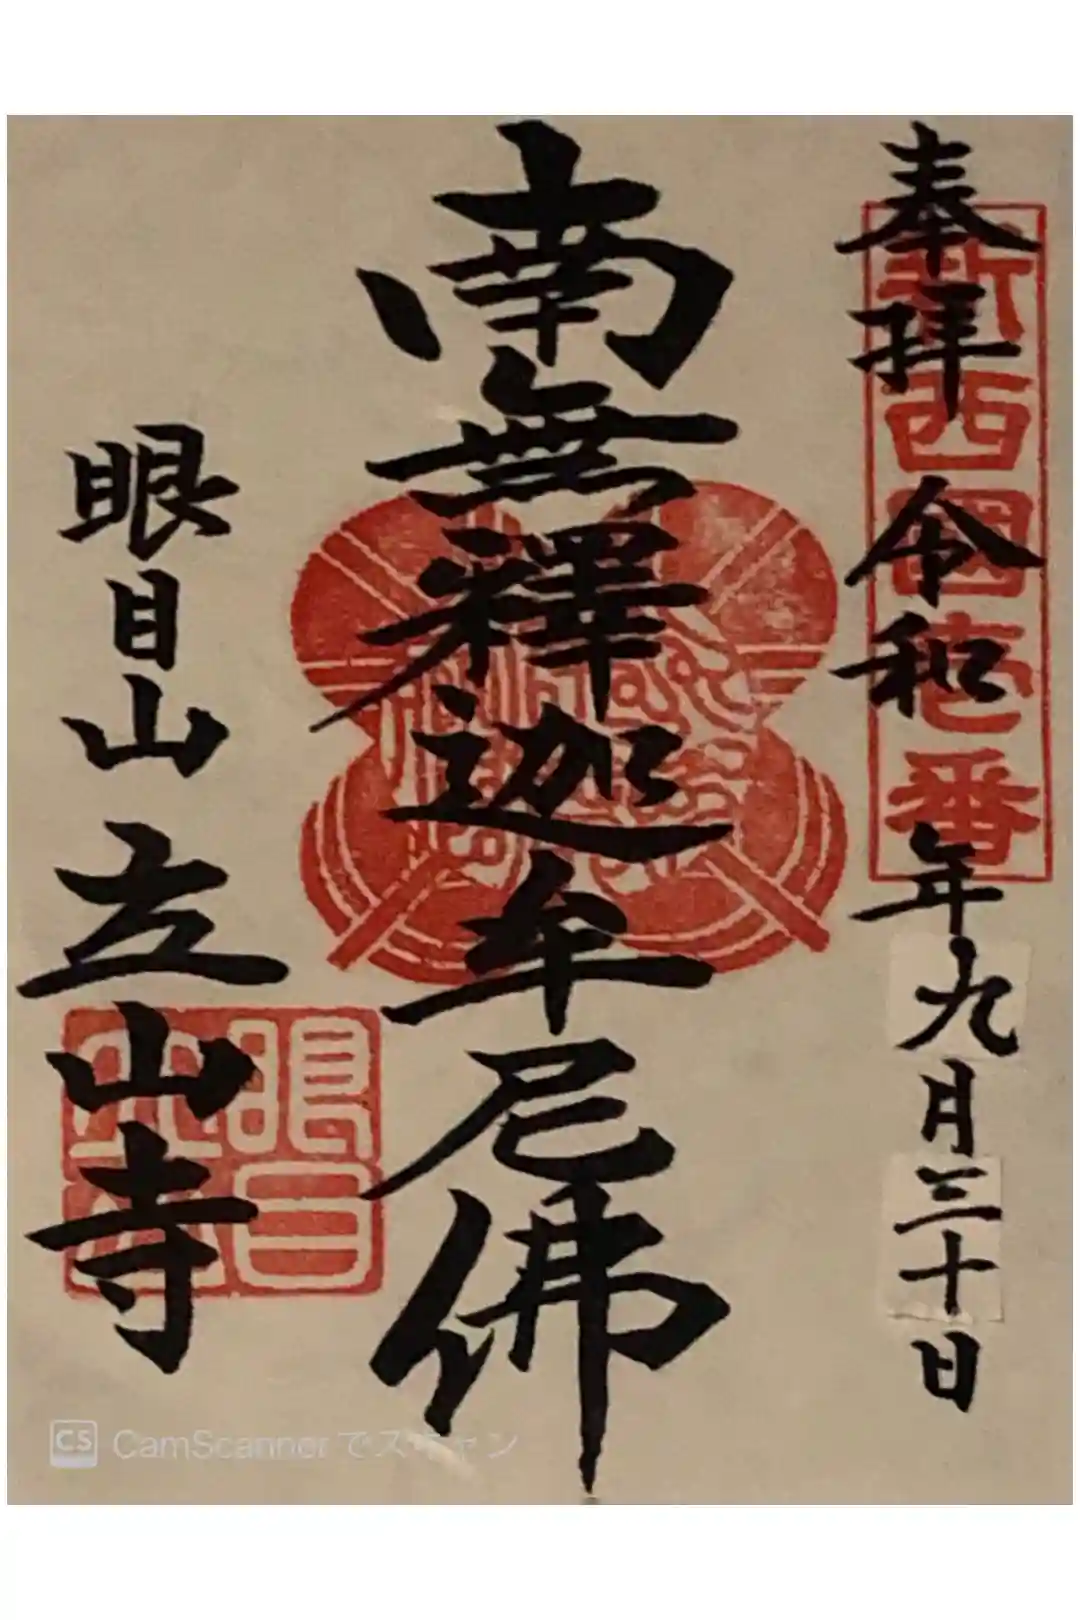 奉拝 令和 年九月三十日
新西國壱番
南無釋迦牟尼佛
眼目山 立山寺
眼目
CS CamScannerでスキャン